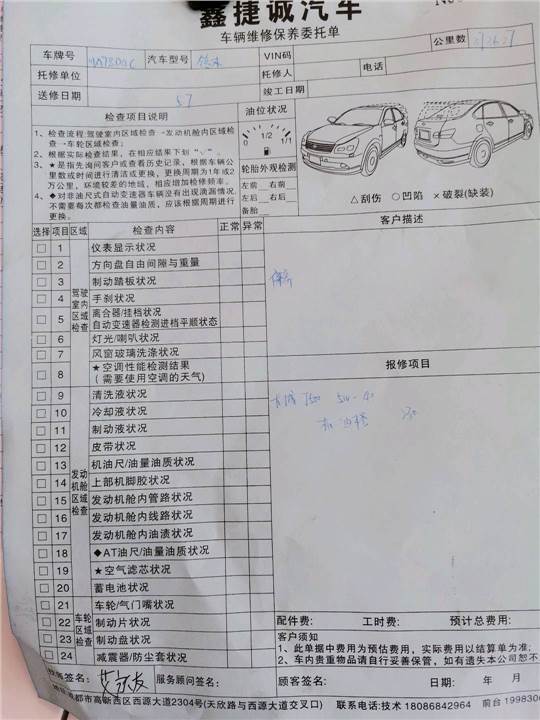 鑫捷诚汽车
车辆维修保养委托单
车牌号 汽车型号 VIN码 公里数
托修单位 托修人 电话
送修日期 5.7 竣工日期
检查项目说明
1、检查流程:驾驶室内区域检查→发动机舱内区域检
查→车轮区域检查;
2、根据实际检查结果，在相应结果下划“＼”。
3、★是指先询问客户或查看历史记录，根据车辆公
里数或时间进行清洁或更换，更换周期为1年或2
万公里，环境较差的地域，相应增加检修频率。
4、◆对非油尺式自动变速器车辆没有出现泄漏情况，
不需要每次都检查油量油质，应该根据周期进行
更换。
油位状况
0 1/2 1/1
轮胎外观检测
左前 右前
左后 右后
备胎
△刮伤 ○凹陷 ×破裂(缺装)
选择 项目 区域 检查内容 正常 异常
驾驶室内区域检查
1 仪表显示状况
2 方向盘自由间隙与重量
3 制动踏板状况
4 手刹状况
5 离合器/挂档状况
自动变速器检测进档平顺状态
6 灯光/喇叭状况
7 风窗玻璃洗涤状况
8 ★空调性能检测结果
(需要使用空调的天气)
发动机舱区域检查
9 清洗液状况
10 冷却液状况
11 制动液状况
12 皮带状况
13 机油尺/油量油质状况
14 上部机脚胶状况
15 发动机舱内管路状况
16 发动机舱内线路状况
17 发动机舱内油渍状况
18 ◆AT油尺/油量油质状况
19 ★空气滤芯状况
20 蓄电池状况
车轮区域检查
21 车轮/气门嘴状况
22 制动片状况
23 制动盘状况
24 减震器/防尘套状况
客户描述
保养
报修项目
5W-40
配件费: 工时费: 预计总费用:
客户须知
1、此单据中费用为预估费用，实际费用以结算单为准;
2、车内贵重物品请自行妥善保管，如有遗失本公司恕不
签名: 服务顾问签名: 顾客签名: 日期: 年 月
都市高新西区西源大道2304号(天欣路与西源大道交叉口) 联系电话:技术 18086842964 前台 1998300